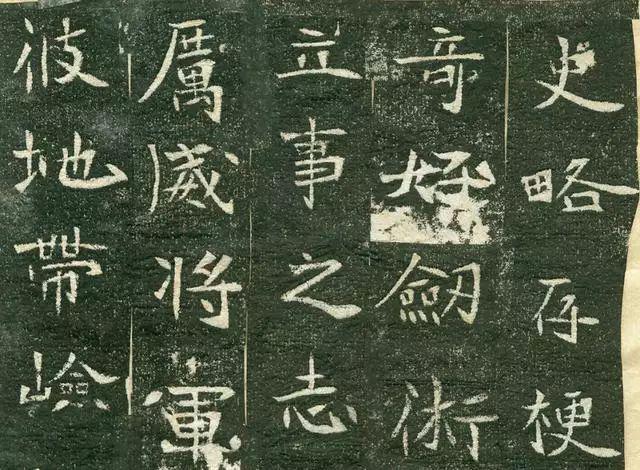 史略存梗
竒劒術
立事之志
厲威将軍
彼地帶嶮